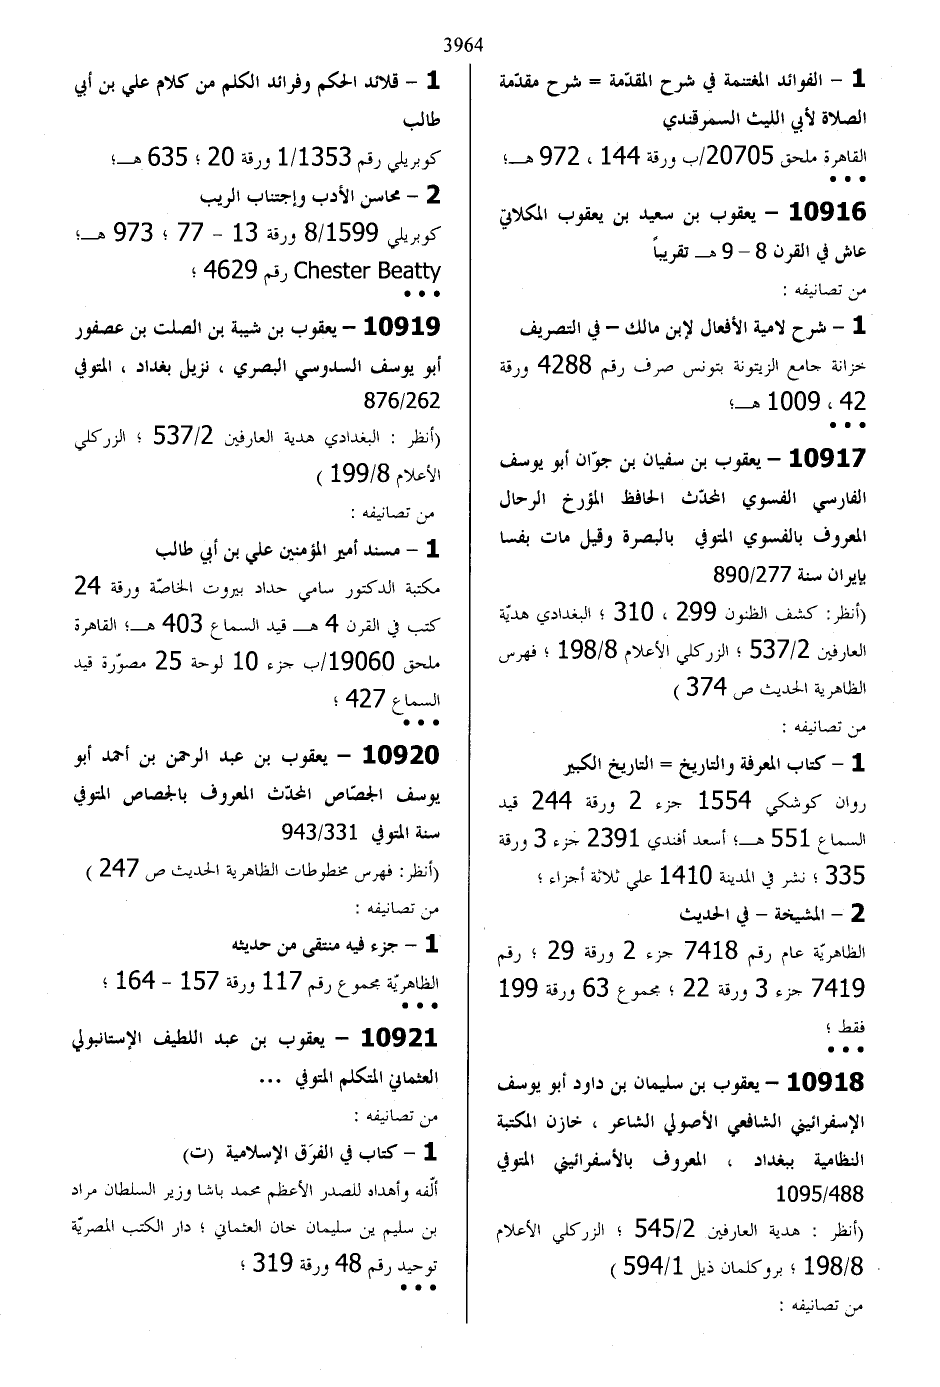 3964
1 – الفوائد المغتنمة في شرح المقدّمة = شرح مقدّمة
الصلاة لأبي الليث السمرقندي
القاهرة ملحق 20705/ب ورقة 144 ، 972 هـ؛
• • •
10916 – يعقوب بن سعيد بن يعقوب المكلاتي
عاش في القرن 8 – 9 هـ تقريباً
من تصانيفه :
1 – شرح لامية الأفعال لإبن مالك – في التصريف
خزانة جامع الزيتونة بتونس صرف رقم 4288 ورقة
42 ، 1009 هـ؛
• • •
10917 – يعقوب بن سفيان بن جوّان أبو يوسف
الفارسي الفسوي المحدّث الحافظ المؤرخ الرحال
المعروف بالفسوي المتوفي بالبصرة وقيل مات بفسا
بإيران سنة 890/277
(أنظر: كشف الظنون 299 ، 310 ؛ البغدادي هديّة
العارفين 537/2 ؛ الزركلي الأعلام 198/8 ؛ فهرس
الظاهرية الحديث ص 374 )
من تصانيفه :
1 – كتاب المعرفة والتاريخ = التاريخ الكبير
روان كوشكي 1554 جزء 2 ورقة 244 قيد
السماع 551 هـ؛ أسعد أفندي 2391 جزء 3 ورقة
335 ؛ نشر في المدينة 1410 علي ثلاثة أجزاء ؛
2 – المشيخة – في الحديث
الظاهريّة عام رقم 7418 جزء 2 ورقة 29 ؛ رقم
7419 جزء 3 ورقة 22 ؛ مجموع 63 ورقة 199
فقط ؛
• • •
10918 – يعقوب بن سليمان بن داود أبو يوسف
الإسفرائيني الشافعي الأصولي الشاعر ، خازن المكتبة
النظامية ببغداد ، المعروف بالأسفرائيني المتوفي
1095/488
(أنظر : هدية العارفين 545/2 ؛ الزركلي الأعلام
198/8 ؛ بروكلمان ذيل 594/1 )
من تصانيفه :
1 – قلائد الحكم وفرائد الكلم من كلام علي بن أبي
طالب
كوبريلي رقم 1/1353 ورقة 20 ؛ 635 هـ؛
2 – محاسن الأدب وإجتناب الريب
كوبريلي 8/1599 ورقة 13 – 77 ؛ 973 هـ؛
Chester Beatty رقم 4629 ؛
• • •
10919 – يعقوب بن شيبة بن الصلت بن عصفور
أبو يوسف السدوسي البصري ، نزيل بغداد ، المتوفي
876/262
(أنظر : البغدادي هدية العارفين 537/2 ؛ الزركلي
الأعلام 199/8 )
من تصانيفه :
1 – مسند أمير المؤمنين علي بن أبي طالب
مكتبة الدكتور سامي حداد بيروت الخاصّة ورقة 24
كتب في القرن 4 هـ قيد السماع 403 هـ؛ القاهرة
ملحق 19060/ب جزء 10 لوحة 25 مصوّرة قيد
السماع 427 ؛
• • •
10920 – يعقوب بن عبد الرحمن بن أحمد أبو
يوسف الجصّاص المحدّث المعروف بالجصاص المتوفي
سنة المتوفي 943/331
(أنظر: فهرس مخطوطات الظاهرية الحديث ص 247 )
من تصانيفه :
1 – جزء فيه منتقى من حديثه
الظاهريّة مجموع رقم 117 ورقة 157 – 164 ؛
• • •
10921 – يعقوب بن عبد اللطيف الإستانبولي
العثماني المتكلم المتوفي ...
من تصانيفه :
1 – كتاب في الفرَق الإسلامية (ت)
ألّفه وأهداه للصدر الأعظم محمد باشا وزير السلطان مراد
بن سليم بن سليمان خان العثماني ؛ دار الكتب المصريّة
توحيد رقم 48 ورقة 319 ؛
• • •